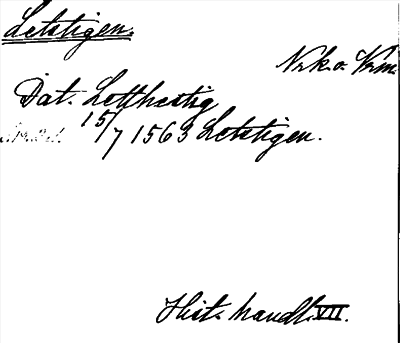 Letstigen.
Nrk o. Vrm.
Dat. Letthestig
15/7 1563 Letstigen.
Hist. handl. VII.